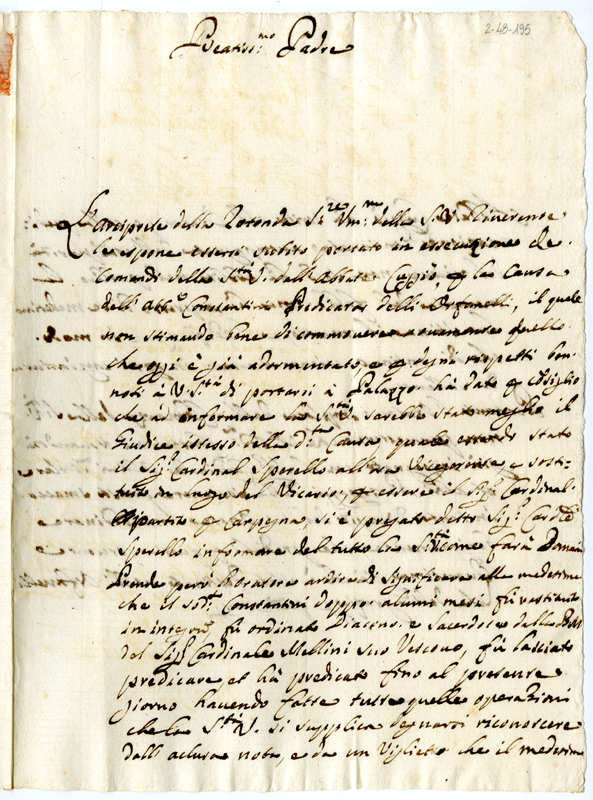 2-48-195
Beatiss.mo Padre
L'Arciprete della Rotonda Ser.re Um.mo della S.V. riverente
le espone essersi subito portato in essecuzione de
Comandi della S.tà V. dall'Abbate Cappio, p la Causa
dell'Abb.e Constantini Predicator delli Orfanelli, il quale
non stimando bene di commovere quello
che oggi è già adormentato, e p degni rispetti ben
noti à V. S.tà di portarsi à Palazzo hà dato p consiglio
che ad informare la S.tà V. sarebbe stato meglio il
Giudice istesso della d.ta Causa quale essendo stato
il Sig.r Cardinal Sperello all'ora Vicegerente e sosti-
tuto in luogo del Vicario, p essere il Sig.r Cardinal
partito p Carpegna, si è pregato detto Sig.r Card.le
Sperello informare del tutto la S.tà V. come farà Domani
Prende però l'Oratore ardire di significare alla medesima
che il sod.o Constantini doppo alcuni mesi fù restituito
in integrum, fù ordinato Diacono e Sacerdote dalla
del Sig.r Cardinale Mellini suo Vescovo, fù lasciato
predicare et hà predicato fino al presente
giorno havendo fatte tutte quelle operazioni
che la S.tà V. si supplica degnarsi riconoscere
dall'aclusa nota, e da un Viglietto che il medesimo